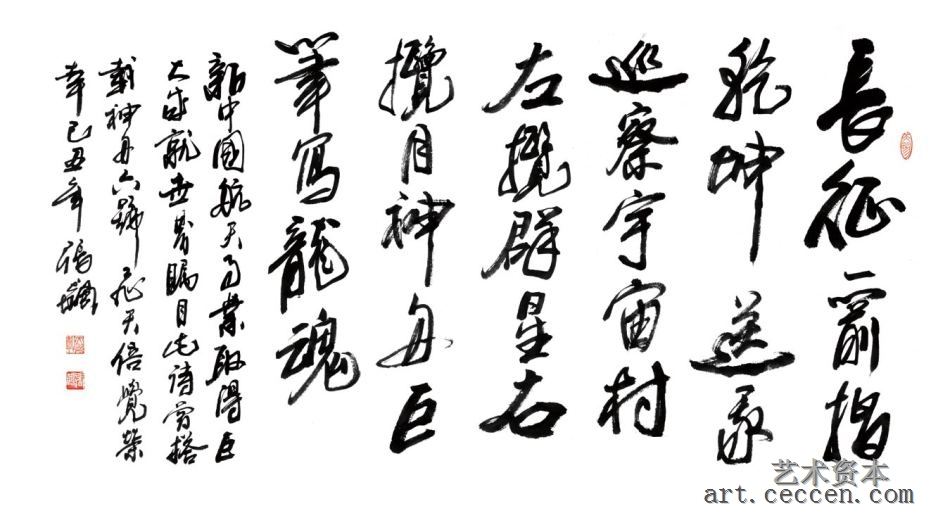 長征一箭指
乾坤送我
巡察宇宙村
左攬群星右
攬月神舟巨
筆寫龍魂
新中國航天事業取得巨
大成就世界矚目此詩曾搭
載神舟六號飛天倍覺榮
幸己丑年張飆
艺术资本
art.ceccen.com